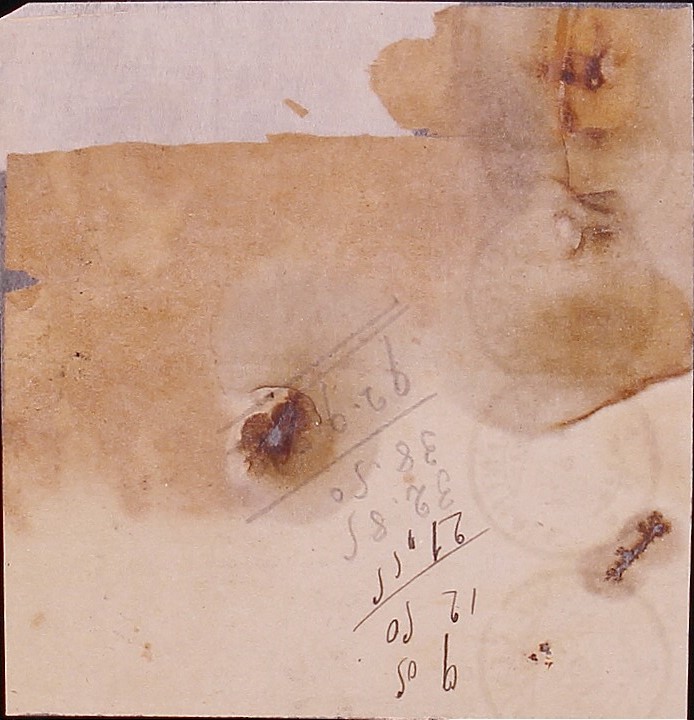 9 05
12 50
21.55
32.85
38.50
92.90